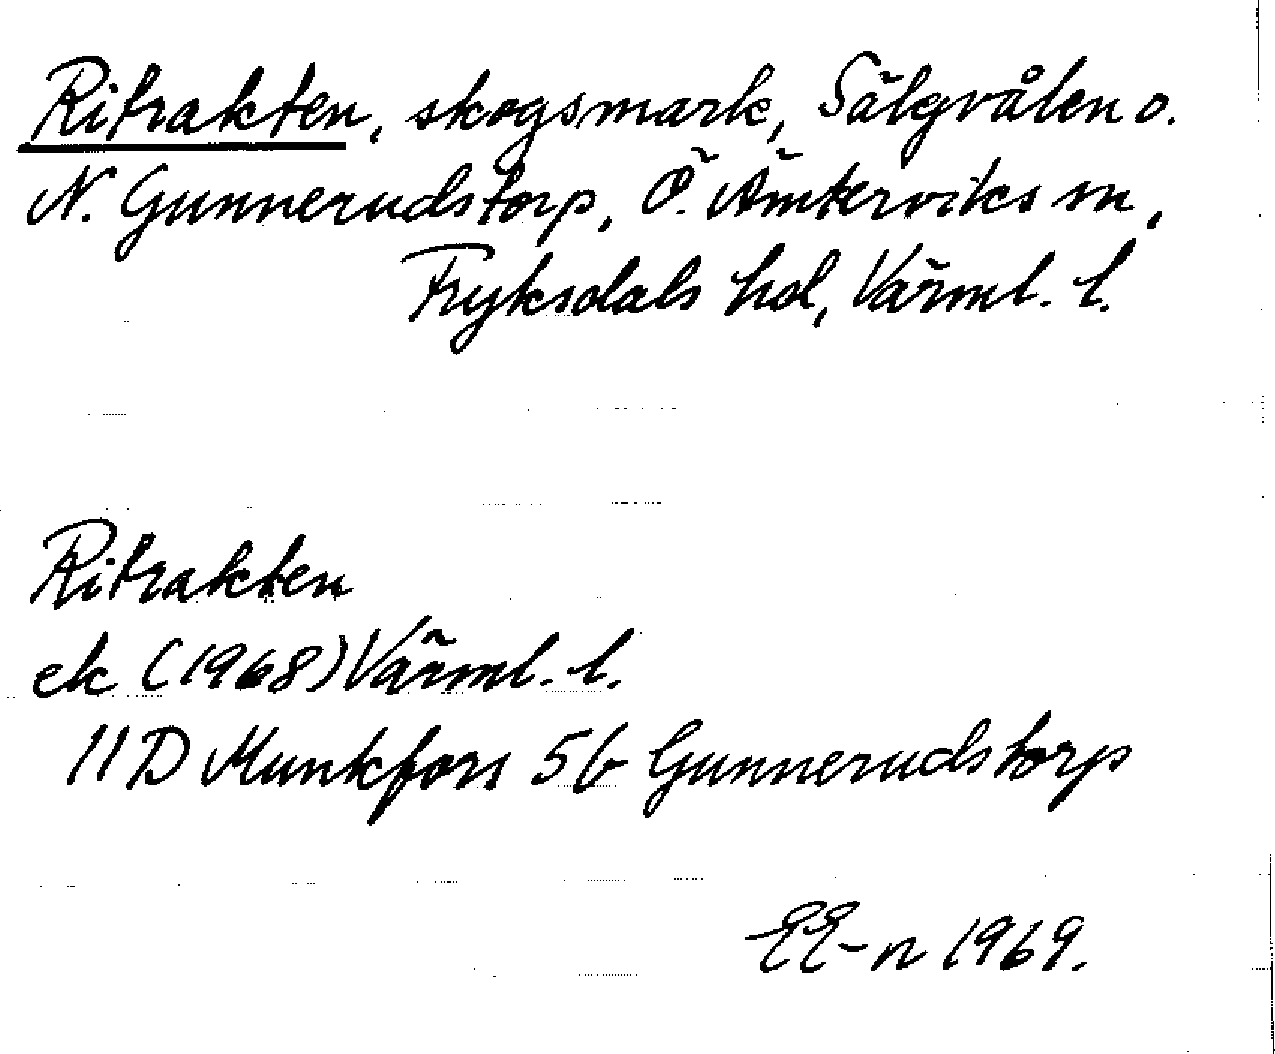 Ritrakten, skogsmark, Sälgvålen o.
N. Gunnerudstorp, Ö. Ämterviks sn,
Fryksdals hd, Värml. l.
Ritrakten
ek (1968) Värml. l.
11D Munkfors 5b Gunnerudstorp
EE-n 1969.